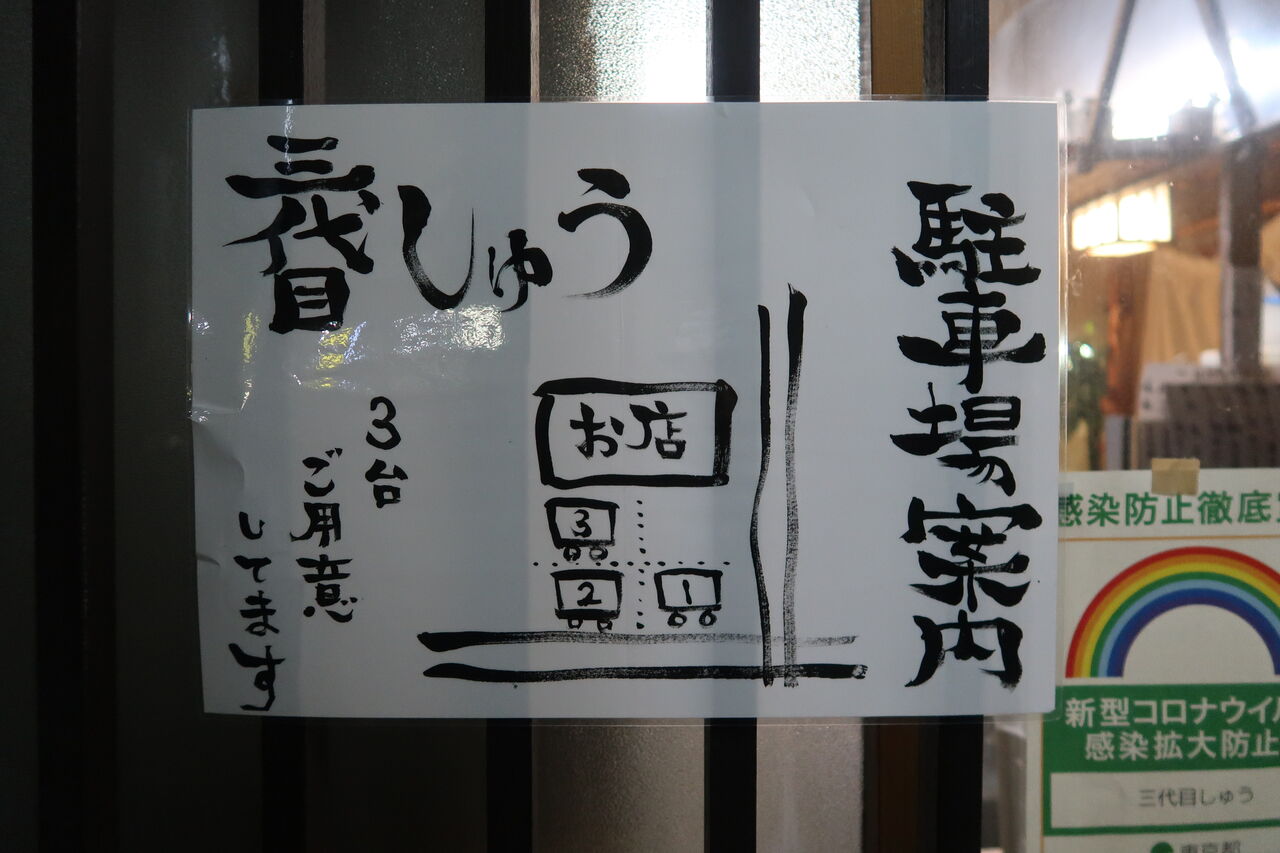 駐車場案内
三代目しゅう
お店
3
2
1
3台
ご用意
してます
感染防止徹底
新型コロナウイ
感染拡大防止
三代目しゅう
東京都